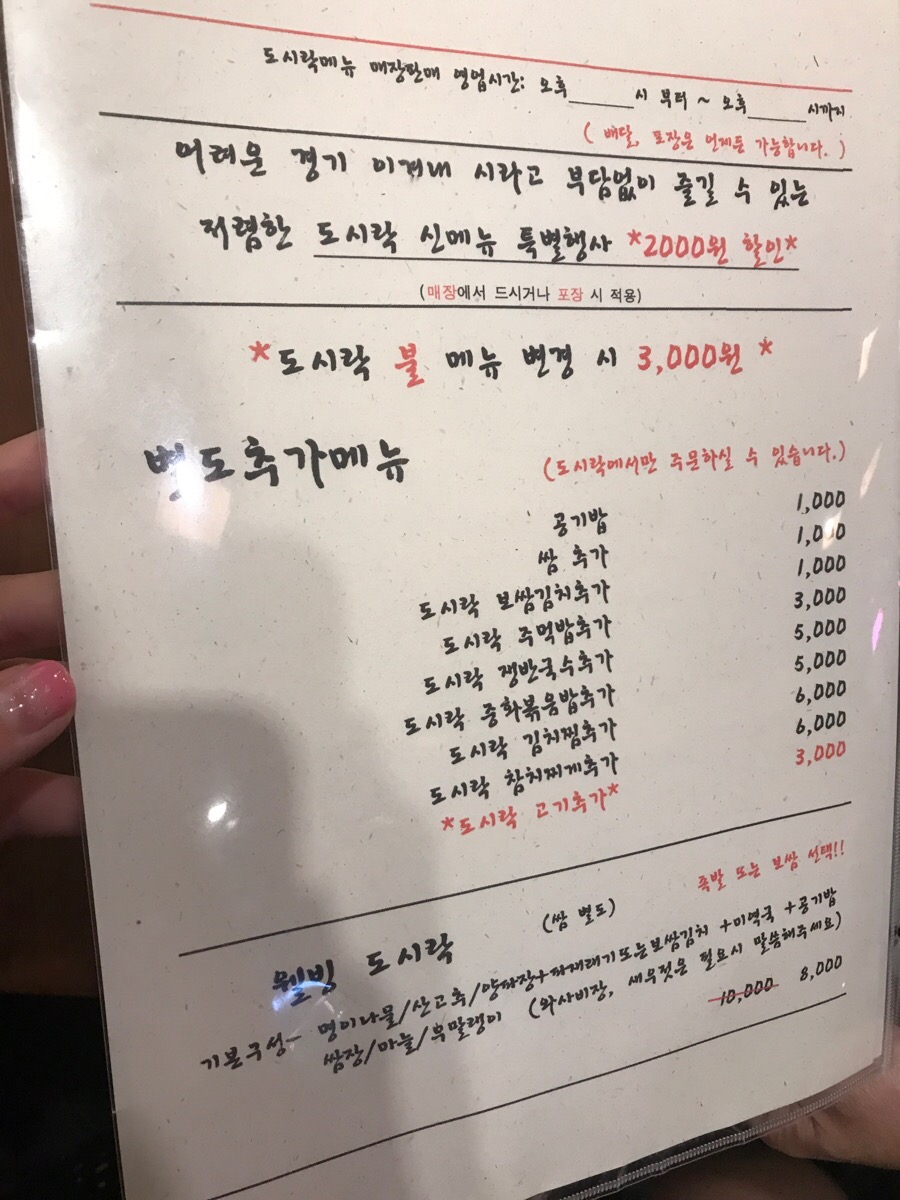 도시락메뉴 매장판매 영업시간: 오후______시 부터 ~ 오후______시까지
( 배달, 포장은 언제든 가능합니다. )
어려운 경기 이겨내 시라고 부담없이 즐길 수 있는
저렴한 도시락 신메뉴 특별행사 *2000원 할인*
(매장에서 드시거나 포장 시 적용)
*도시락 불 메뉴 변경 시 3,000원 *
별도추가메뉴 (도시락에서만 주문하실 수 있습니다.)
공기밥 1,000
쌈 추가 1,000
도시락 보쌈김치추가 1,000
도시락 주먹밥추가 3,000
도시락 쟁반국수추가 5,000
도시락 중화볶음밥추가 5,000
도시락 김치찜추가 6,000
도시락 참치찌게추가 6,000
*도시락 고기추가* 3,000
족발 또는 보쌈 선택!!
웰빙 도시락 (쌈 별도)
기본구성- 명이나물/산고추/양파장+파재래기또는보쌈김치 +미역국 +공기밥
쌈장/마늘/무말랭이 (와사비장, 새우젓은 필요시 말씀해주세요)
10,000 8,000